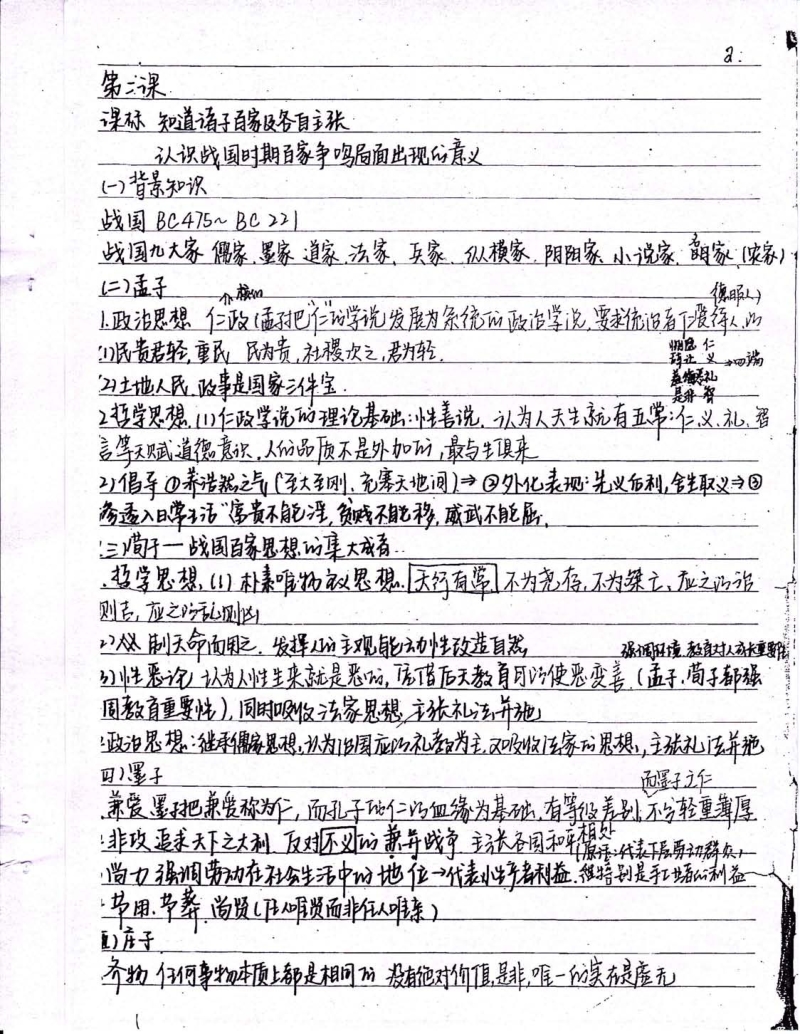 2.
第二课
课标 知道诸子百家及各自主张
认识战国时期百家争鸣局面出现的意义
(一)背景知识
战国 BC475~BC221
战国九大家 儒家、墨家 道家、法家、兵家、纵横家、阴阳家、小说家、名家(农家)
(二)孟子
核心
1.政治思想 仁政(孟子把"仁"的学说发展为系统的政治学说,要求统治者
(1)民贵君轻,重民 民为贵,社稷次之,君为轻.
恻隐 仁
羞止 义 →四端
恭敬 礼
是非 智
(2)土地人民、政事是国家三件宝.
2.哲学思想.(1)仁政学说的理论基础:性善说. 认为人天生就有五常:仁、义、礼、智
信等天赋道德意识,人的品质不是外加的,是与生俱来
2)倡导①养浩然之气(至大至刚、充塞天地间)⇒②外化表现:先义后利,舍生取义⇒③
渗透入日常生活"富贵不能淫,贫贱不能移,威武不能屈.
(三)荀子——战国百家思想的集大成者.
哲学思想.(1)朴素唯物主义思想.天行有常 不为尧存,不为桀亡,应之以治
则吉,应之以乱则凶
(2) 制天命而用之. 发挥人的主观能动性改造自然
强调环境、教育对人成长重要性
3)性恶论 认为人性生来就是恶的,凭借后天教育可以使恶变善.(孟子、荀子都强
调教育重要性),同时吸收法家思想,主张礼法并施
政治思想:继承儒家思想,认为治国应以礼教为主,又吸收法家的思想,主张礼法并施
四)墨子
而墨子之仁
兼爱 墨子把兼爱称为仁,而孔子的仁以血缘为基础,有等级差别,不分轻重薄厚
非攻 追求天下之大利 反对不义的兼并战争 主张各国和平相处
代表下层劳动群众)
尚力 强调劳动在社会生活中的地位→代表小生产者利益、特别是手工业者的利益
节用、节葬 尚贤(任人唯贤而非任人唯亲)
五)庄子
齐物 任何事物本质上都是相同的 没有绝对价值,是非,唯一的实在是虚无